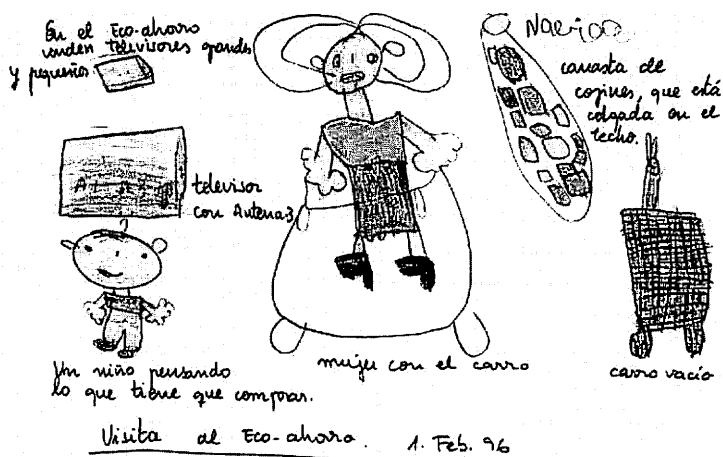 En el Eco-ahorro
venden televisores grandes
y pequeños
canasta de
cojines, que está
colgada en el
techo.
televisor
con Antena 3
Un niño pensando
lo que tiene que comprar.
mujer con el carro
carro vacío
Visita al Eco-ahorro. 1. Feb. 96